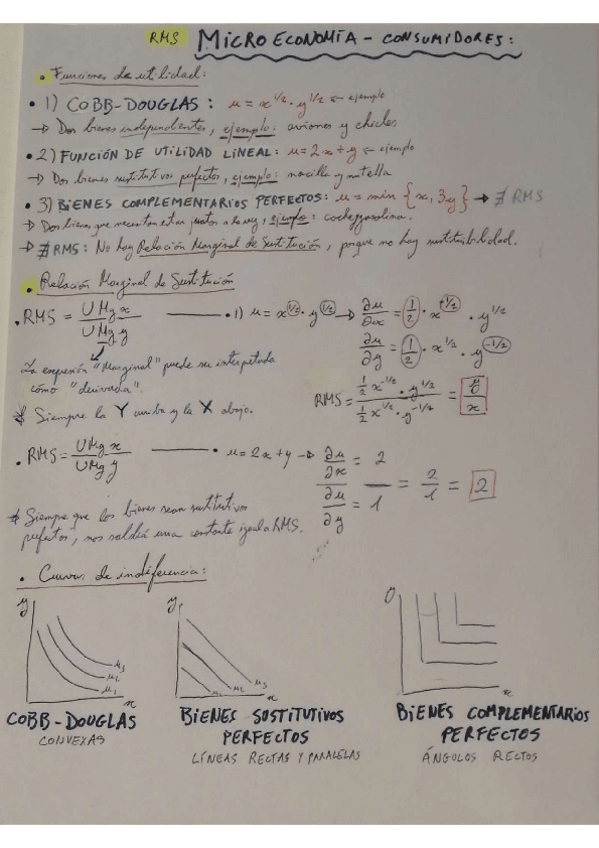 RMS MICROECONOMÍA - CONSUMIDORES:
• Funciones de utilidad:
• 1) COBB-DOUGLAS: u = x^1/2 · y^1/2 ← ejemplo
→ Dos bienes independientes, ejemplo: aviones y chicles
• 2) FUNCIÓN DE UTILIDAD LINEAL: u = 2·x + y ← ejemplo
→ Dos bienes sustitutivos perfectos, ejemplo: nocilla y nutella
• 3) BIENES COMPLEMENTARIOS PERFECTOS: u = min {x, 3y} → ∄ RMS
→ Dos bienes que necesitan estar juntos a la vez, ejemplo: coche y gasolina.
→ ∄ RMS: No hay Relación Marginal de Sustitución, porque no hay sustituibilidad.
• Relación Marginal de Sustitución
• RMS = UMg x / UMg y — • 1) u = x^1/2 · y^1/2 → ∂u/∂x = 1/2 · x^-1/2 · y^1/2
∂u/∂y = 1/2 · x^1/2 · y^-1/2
La expresión "Marginal" puede ser interpretada
cómo "derivada".
RMS = 1/2 x^-1/2 · y^1/2 / 1/2 x^1/2 · y^-1/2 = y/x
* Siempre la Y arriba y la X abajo.
• RMS = UMg x / UMg y — • u = 2x + y → ∂u/∂x = 2 / ∂u/∂y = 1 = 2/1 = 2
* Siempre que los bienes sean sustitutivos
perfectos, nos saldrá una constante igual a RMS.
• Curvas de indiferencia:
y u3 u2 u1 x
y u1 u2 u3 x
x
COBB-DOUGLAS
CONVEXAS
BIENES SUSTITUTIVOS
PERFECTOS
LÍNEAS RECTAS Y PARALELAS
BIENES COMPLEMENTARIOS
PERFECTOS
ÁNGULOS RECTOS